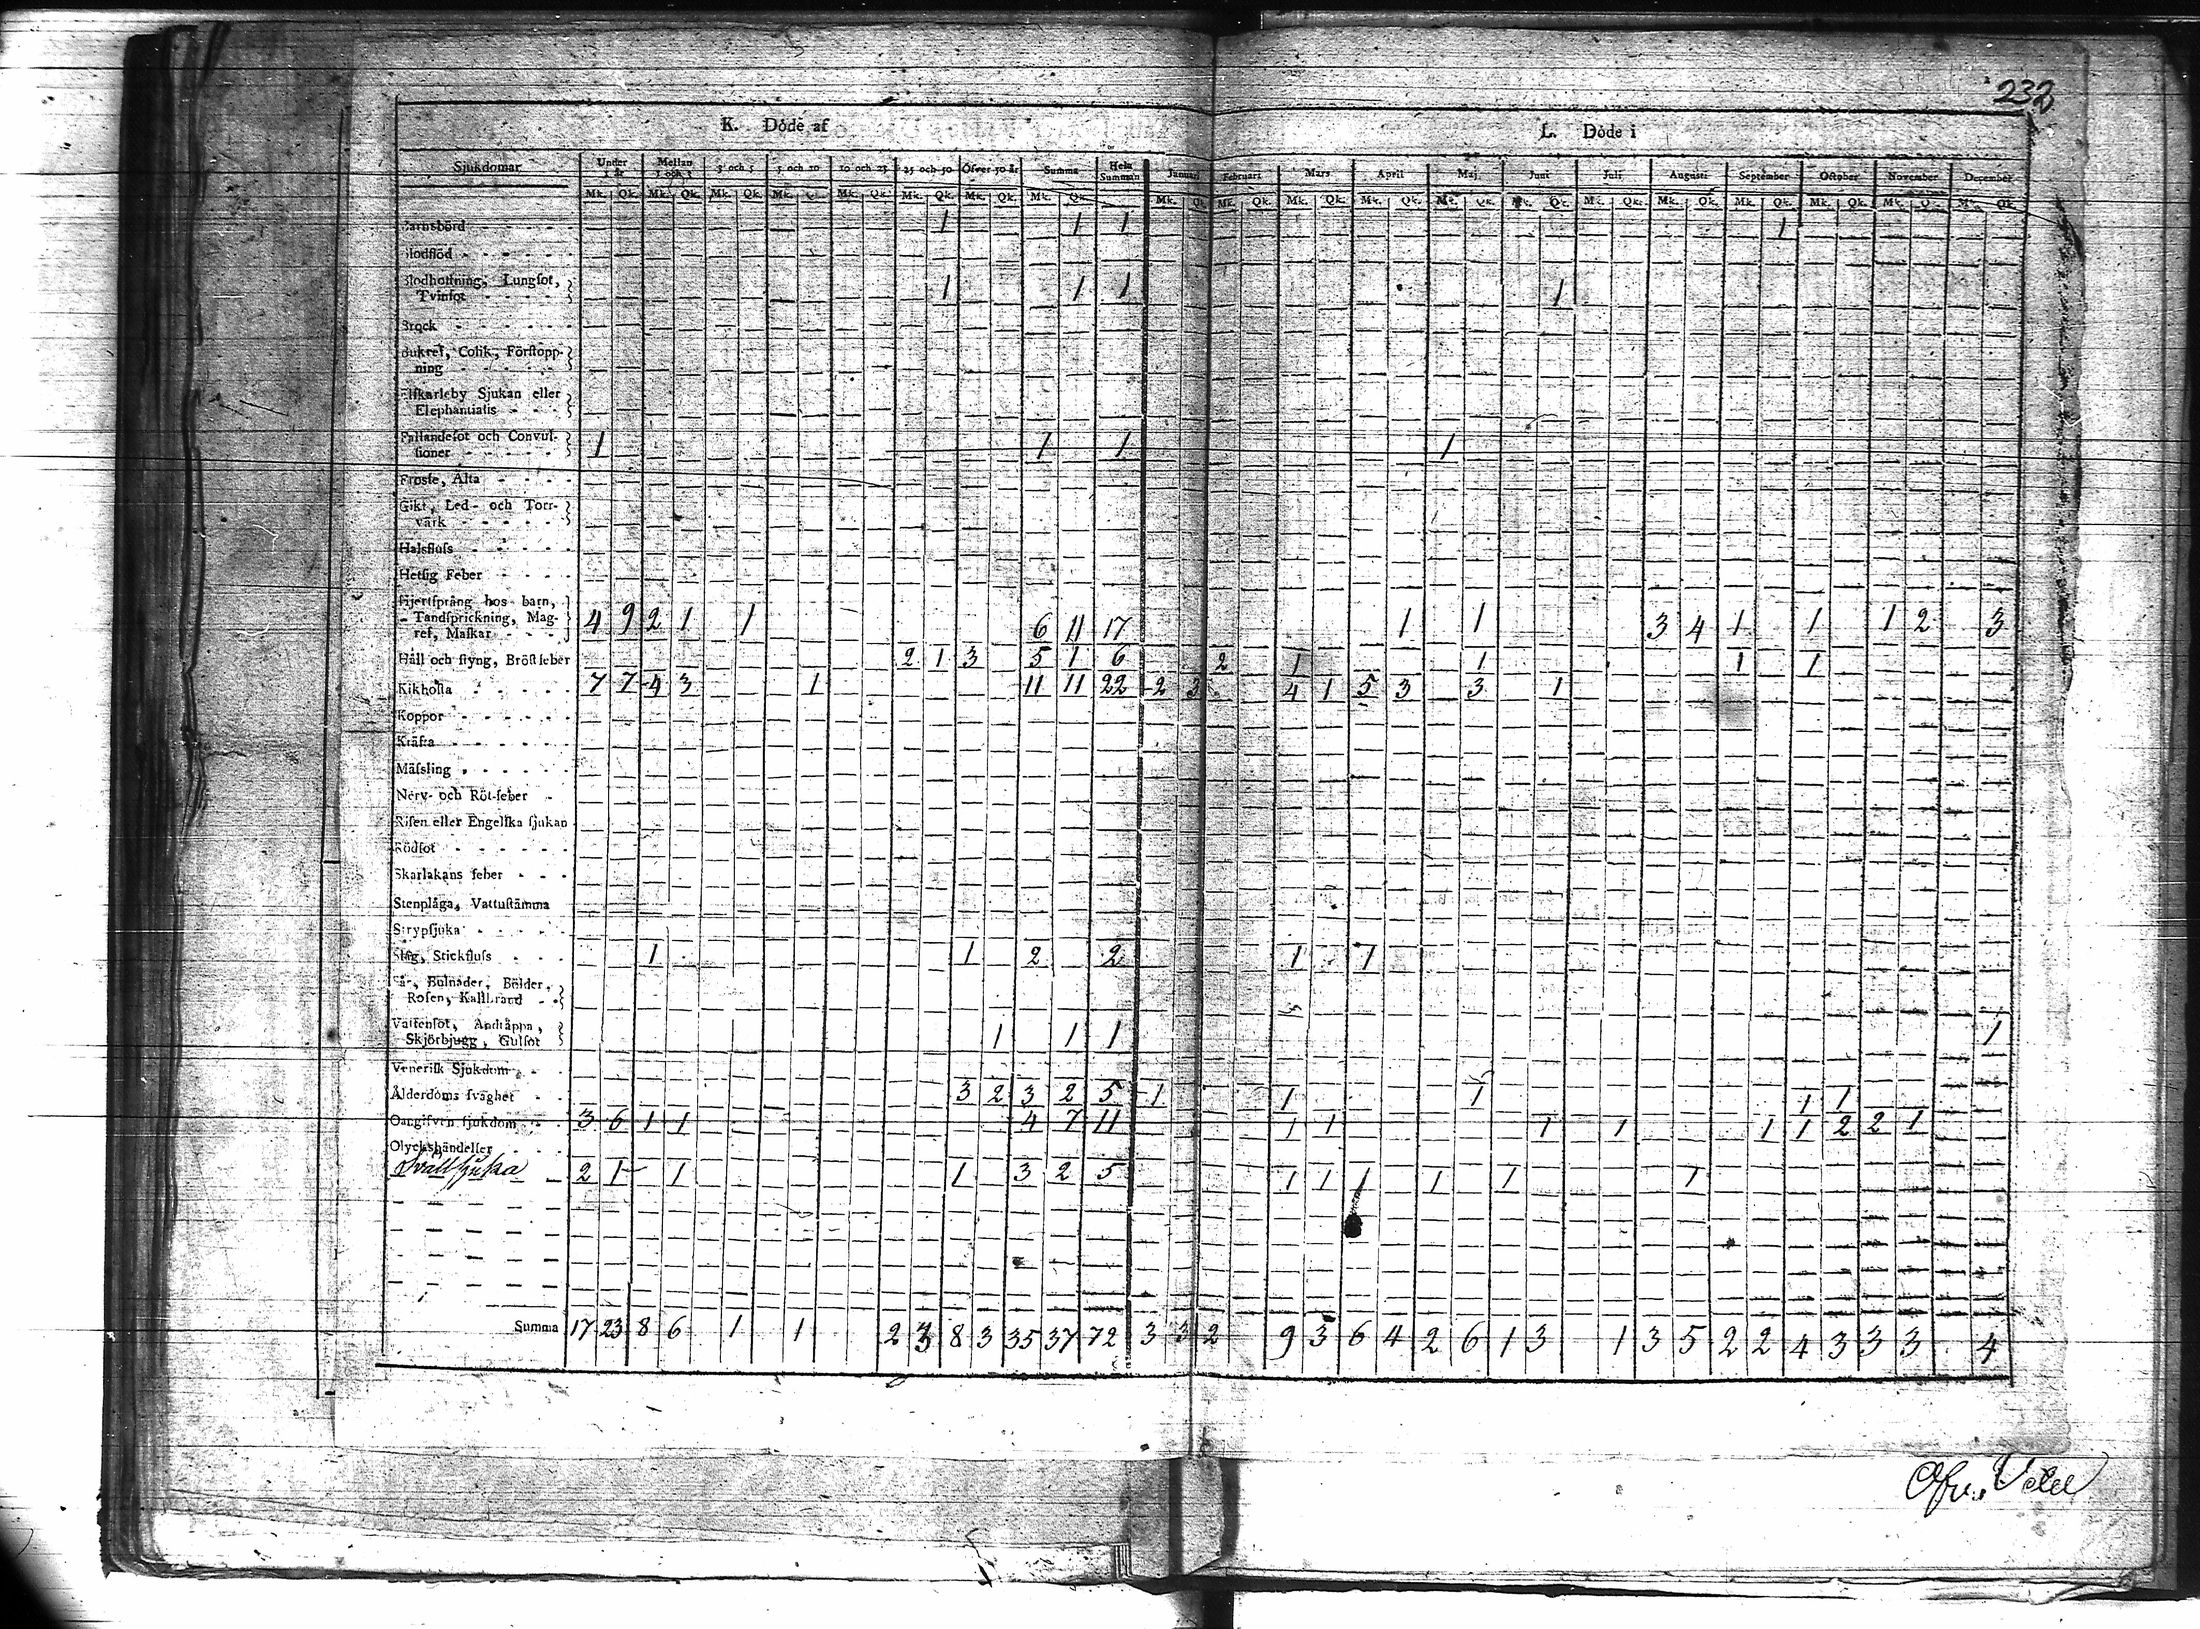 232
K. Döde af
L. Döde i
Sjukdomar Under 1 år Mellan 1 och 3 3 och 5 5 och 10 10 och 25 25 och 50 Öfver 50 år Summa Hela Summan Januari Februari Mars April Maj Juni Juli Augusti September October November December
Mk. Qk. Mk. Qk. Mk. Qk. Mk. Qk. Mk. Qk. Mk. Qk. Mk. Qk. Mk. Qk. Mk. Qk. Mk. Qk. Mk. Qk. Mk. Qk. Mk. Qk. Mk. Qk. Mk. Qk. Mk. Qk. Mk. Qk. Mk. Qk. Mk. Qk. Mk. Qk.
Barnsbörd 1 1 1 1
Blodflöd
Blodhostning, Lungsot,
Tvinsot 1 1 1 1
Brock
Bukref, Colik, Förstopp-
ning
Elfkarleby Sjukan eller
Elephantiasis
Fallandesot och Convul-
sioner 1 1 1 1
Frossa, Älta
Gikt, Led- och Torr-
värk
Halsfluss
Hetsig Feber
Hjertsprång hos barn,
Tandsprickning, Mag-
ref, Maskar 4 9 2 1 1 6 11 17 1 1 3 4 1 1 1 2 3
Håll och styng, Bröstfeber 2 1 3 5 1 6 2 1 1 1 1
Kikhosta 7 7 4 3 1 11 11 22 2 3 4 1 5 3 3 1
Koppor
Kräfta
Mässling
Nerv- och Röt-feber
Risen eller Engelska sjukan
Rödsot
Skarlakans feber
Stenplåga, Vattustämma
Strypsjuka
Slag, Stickfluss 1 1 2 2 1 1
Sår, Bulnader, Bölder,
Rosen, Kallbrand
Vattensot, Andtäppa,
Skjörbjugg, Gulsot 1 1 1 1
Venerisk Sjukdom
Ålderdoms svaghet 3 2 3 2 5 1 1 1 1 1
Oangifven sjukdom 3 6 1 1 4 7 11 1 1 1 1 1 1 2 2 1
Olyckshändelser
2 1 1 1 3 2 5 1 1 1 1 1 1
Summa 17 23 8 6 1 1 2 3 8 3 35 37 72 3 3 2 9 3 6 4 2 6 1 3 1 3 5 2 2 4 3 3 3 4